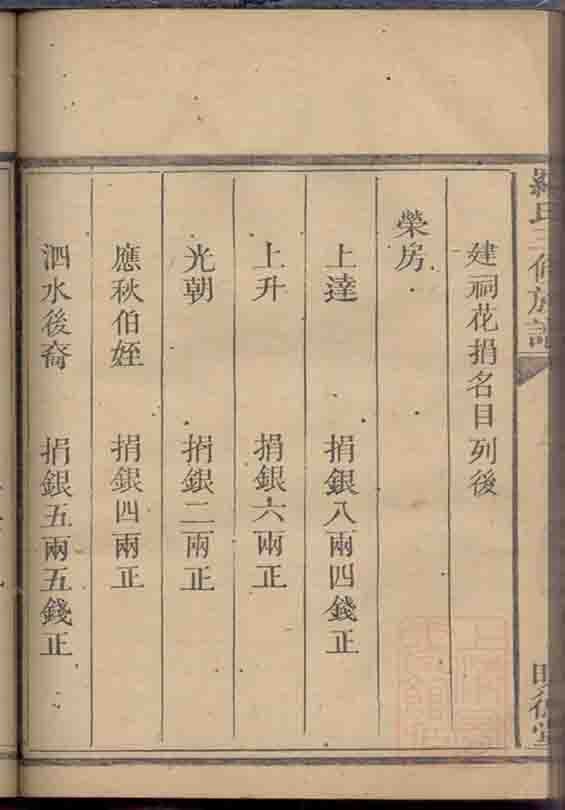 羅氏三修族譜
建祠花捐名目列後
榮房
上達 捐銀八兩四錢正
上升 捐銀六兩正
光朝 捐銀二兩正
應秋伯姪 捐銀四兩正
泗水後裔 捐銀五兩五錢正